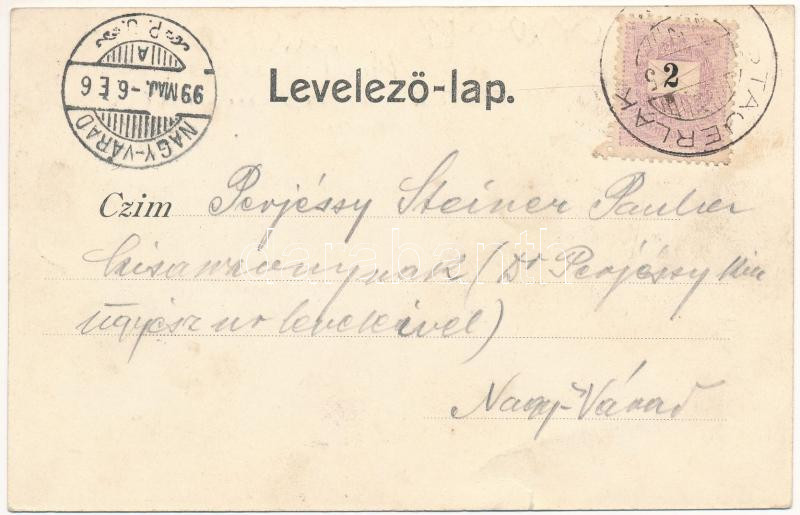 NAGY-VÁRAD
99 MÁJ.-6. É 6
A
P. U.
Levelező-lap.
2
STÁJERLAK
Czim Perjéssy Steiner Paulia
kisasszonynak (Dr Perjéssy kir
ügyész úr levelével)
Nagy-Várad
darabanth